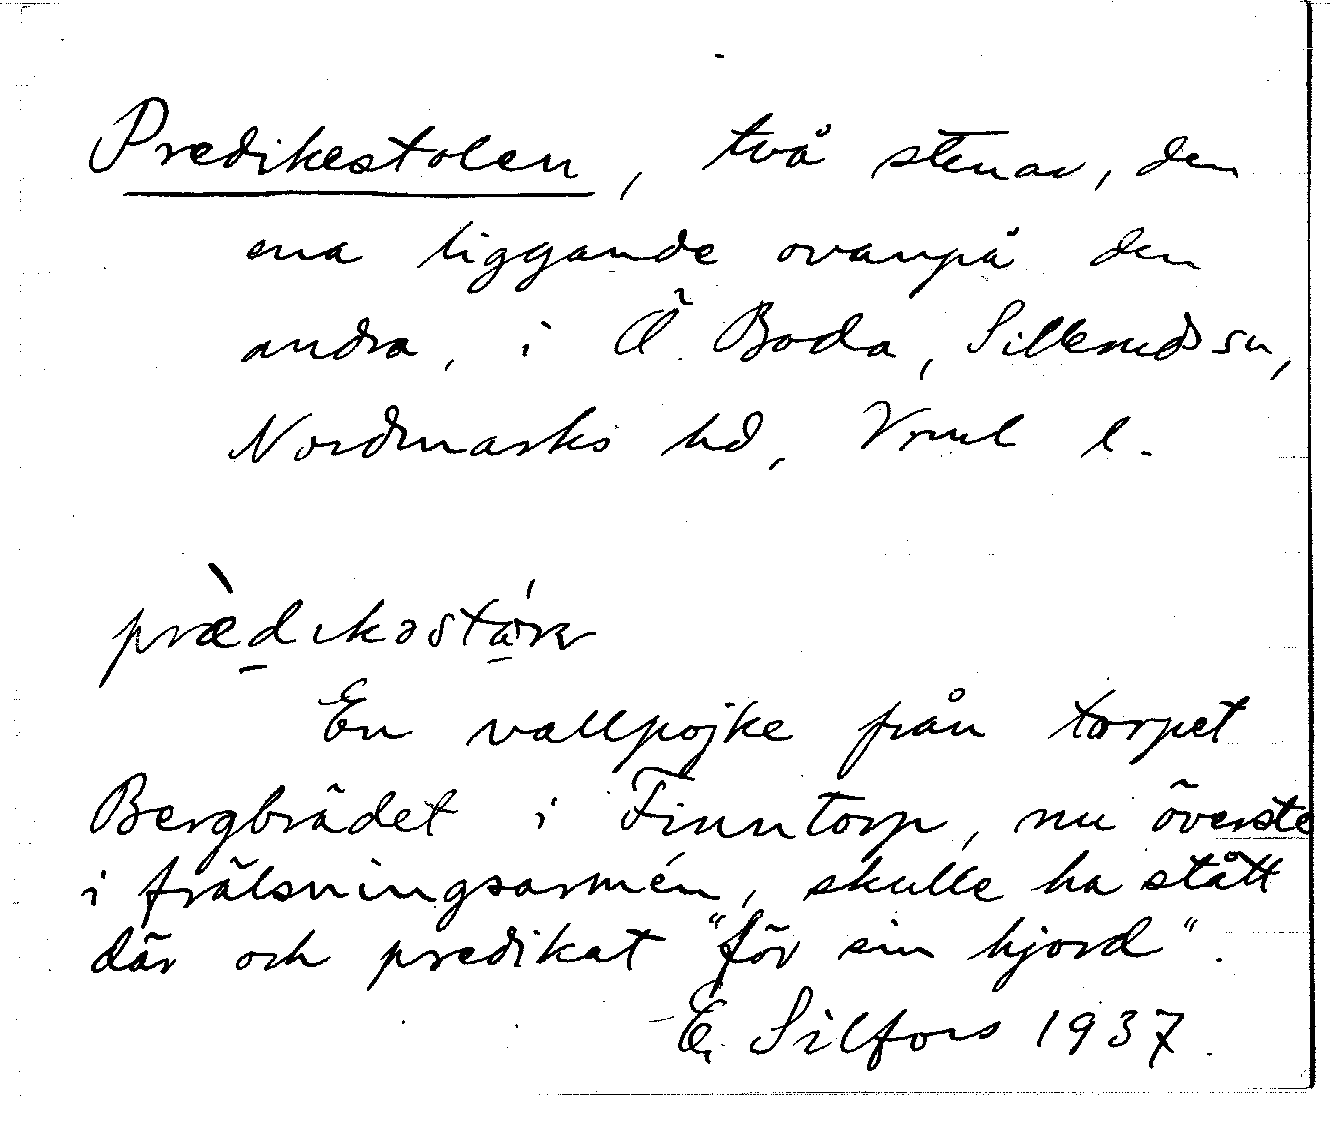 Predikestolen, två stenar, den
ena liggande ovanpå den
andra, i Ö. Boda, Silleruds sn,
Nordmarks hd, Vrml l.
En vallpojke från torpet
Bergbrädet i Finntorp, nu överste
i frälsningsarmén, skulle ha stått
där och predikat "för sin hjord".
E. Silfors 1937.